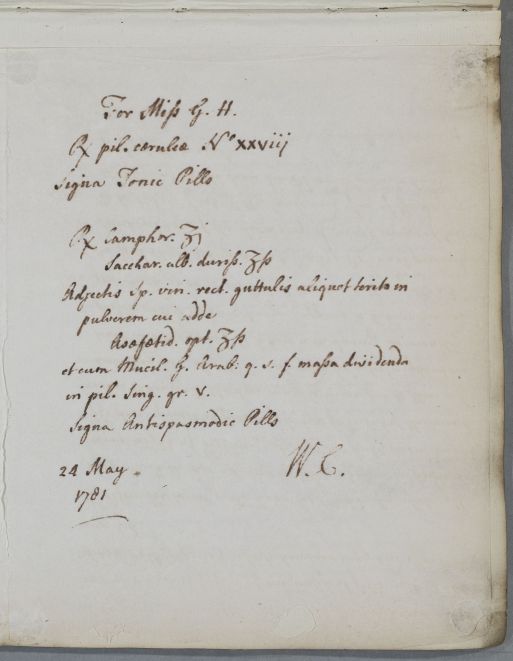 For Miſs G. H.
℞ pil. cæruleæ No xxviij
Signa Tonic Pills
℞ Camphor. ʒj
Sacchar. alb. duriſs. ʒſs
Adjectis Sp. vin. rect. guttulis aliquot terito in
pulverem cui adde
Asafœtid. opt. ʒſs
et cum Mucil. G. Arab. q. s. f. maſsa dividenda
in pil. Sing. gr. v.
Signa Antispasmodic Pills
24 May
W. C.
1781